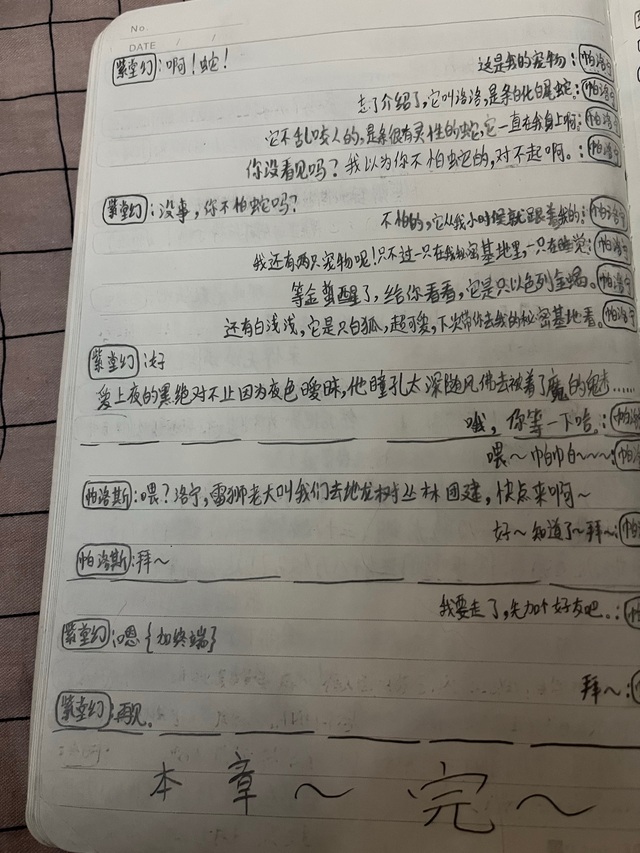 No.
DATE / /
紫堂幻：啊！蛇！
这是我的宠物：帕洛宁
忘了介绍了，它叫洛洛，是条白化白尾蛇：帕洛
它不乱咬人的，是条很有灵性的蛇，它一直在我身上啊：帕洛
你没看见吗？我以为你不怕蛇的，对不起啊。：帕洛
紫堂幻：没事，你不怕蛇吗？
不怕的，它从我小时候就跟着我的：帕洛宁
我还有两只宠物呢！只不过一只在我秘密基地里，一只在睡觉：帕洛
等金蝎醒了，给你看看，它是只以色列金蝎。：帕洛宁
还有白浅浅，它是只白狐，超可爱，下次带你去我的秘密基地看。：帕洛宁
紫堂幻：好
爱上夜的黑绝对不止因为夜色暧昧，他瞳孔太深随风佛去被着了魔的鬼……
哦，你等一下哈。：帕洛
喂～帕帕～～～：帕洛
帕洛斯：喂？洛宁，雷狮老大叫我们去地龙树丛林团建，快点来啊～
好～知道了～拜～：帕
帕洛斯：拜～
我要走了，先加个好友吧。：帕
紫堂幻：嗯{加终端}
拜～：
紫堂幻：再见.
本章～完～